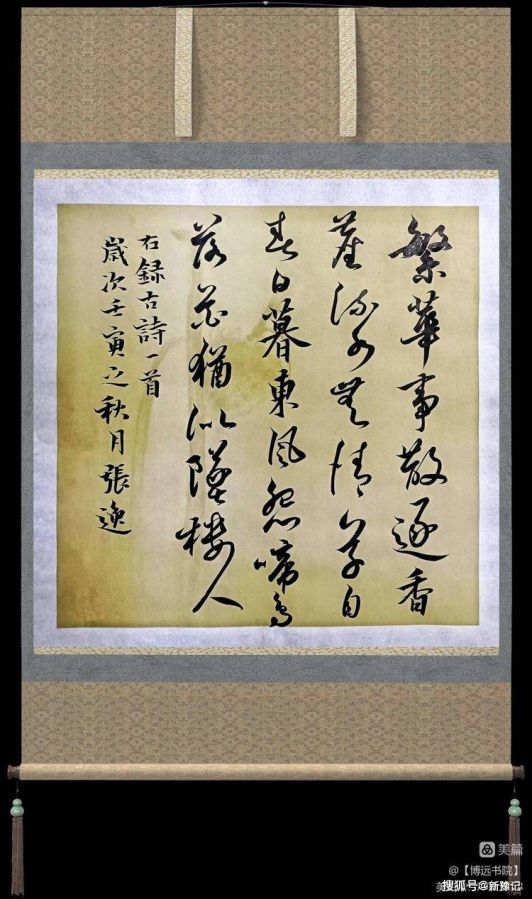 繁華事散逐香
塵流水無情草自
春日暮東風怨啼鳥
落花猶似墜樓人
右録古詩一首
歲次壬寅之秋月張逸
美篇
@【博远书院】
搜狐号@新豫记